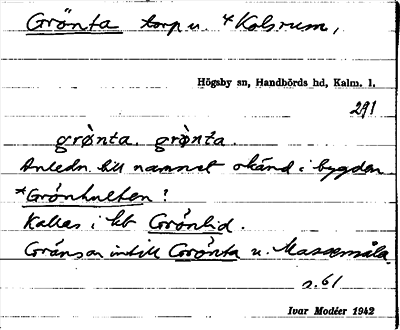 Grönta torp u. 4 Kolsrum,
Högsby sn, Handbörds hd, Kalm. l.
291
grö̀nta. grö̀nta.
Anledn. till namnet okänd i bygden
*Grönhulten!
Kallas i kb Grönlid.
Gränsar intill Grönta u. Massemåla.
s. 61
Ivar Modéer 1942